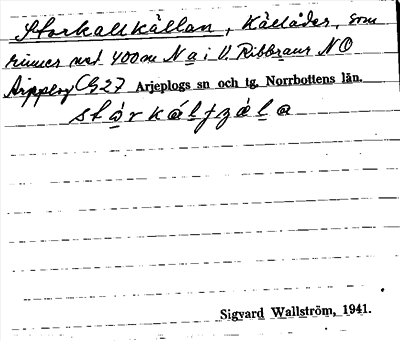 Storkallkällan, Källåder, som
rinner ned 400m N a i V. Ribbraur NO
Arjeplog C927 Arjeplogs sn och tg, Norrbottens län.
Sigvard Wallström, 1941.